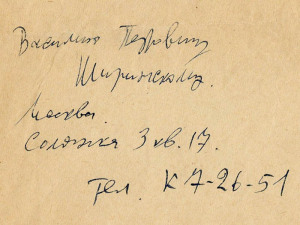 Василию Петровичу
Ширинскому.
Москва.
Солянка 3 кв. 17.
Тел. К 7-26-51